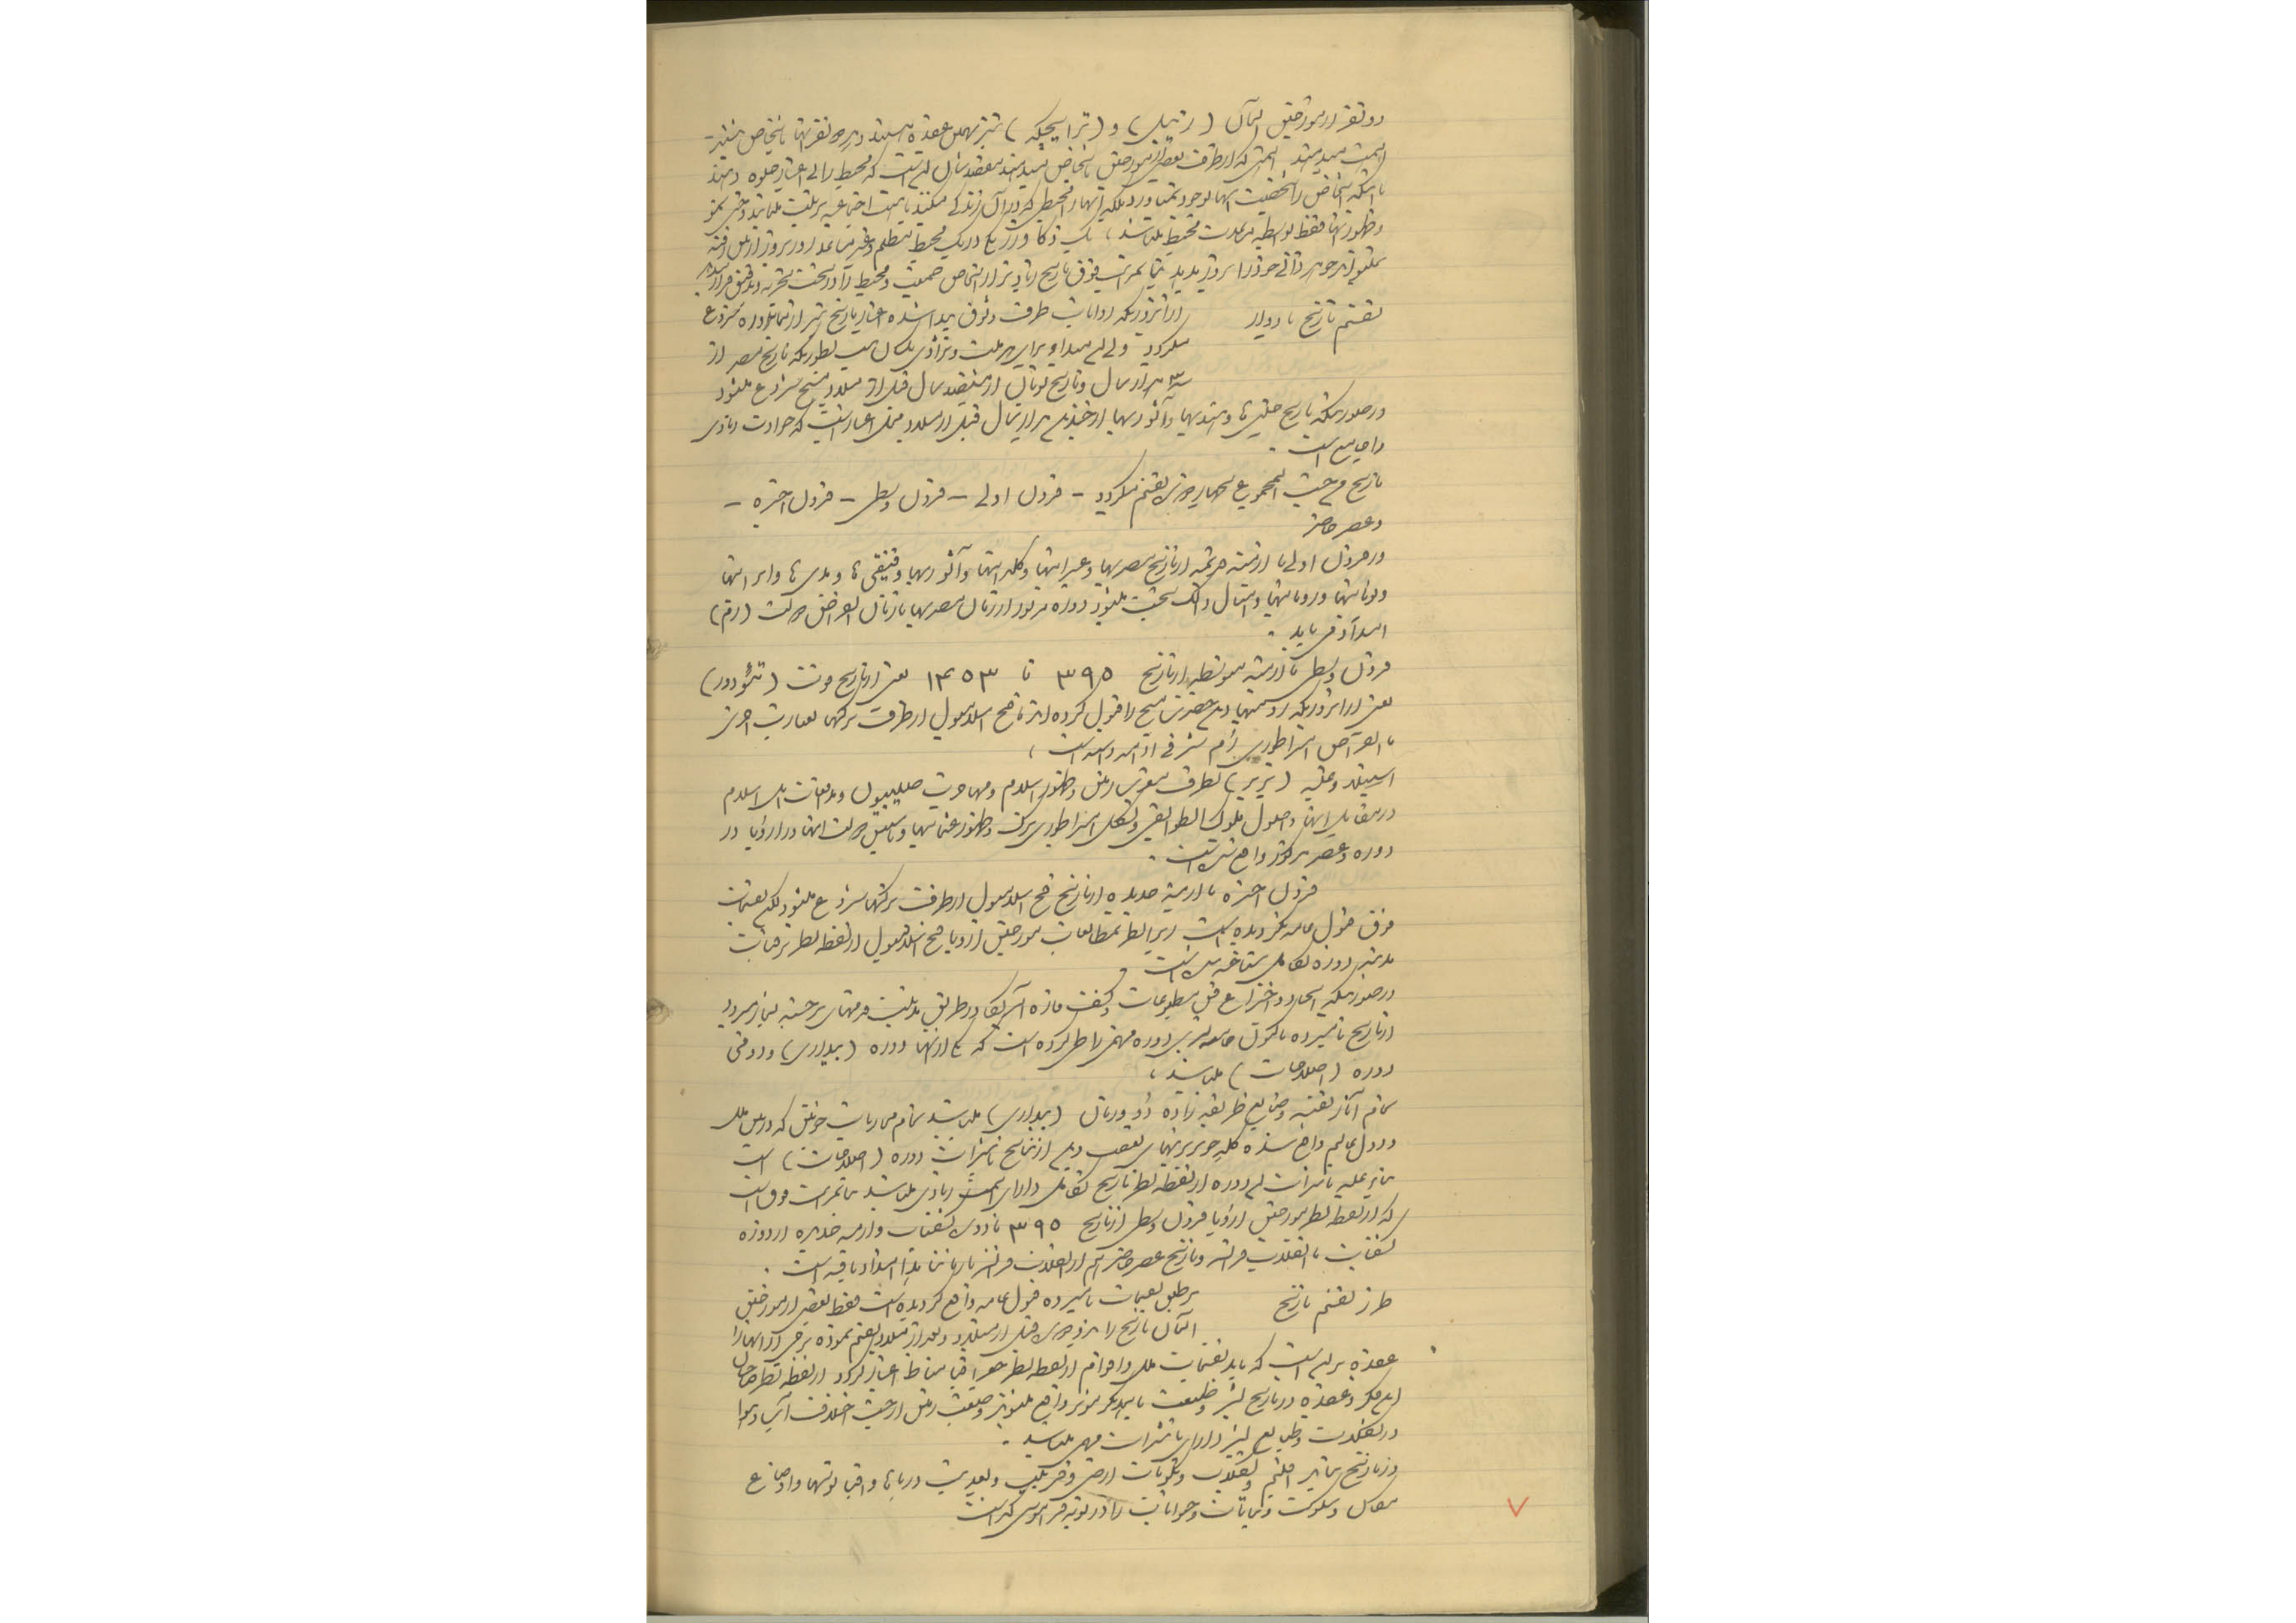 دو نفر از مورخین آلمان ( رتیل ) و ( ترایچکه ) نیز بهمین عقیده هستند و هر دو نفر آنها باشخاص بیشتر
اهمیت میدهند اهمیتی که از طرف بعضی از مورخین باشخاص میدهند معتقدشان این است که محیط را بی اعتبار جلوه دهند
با اینکه اشخاص را شخصیت آنها بوجود نمیاورد بلکه آنها را محیطی که در آن زندگی میکنند
و ظهور آنها فقط بواسطه مساعدت محیط میباشد ، یک ذکاوت در یک محیط
نمیتواند جوهر ذاتی خود را بروز بدهد بنا بمراتب فوق تاریخ زیادتر از اشخاص جمعیت و محیط را در تحت تجربه و تدقیق قرار میدهد
تقسیم تاریخ بادوار
از آنروزیکه روایات طرف وثوق پیدا شده اعتبار تاریخ نیز از همانروز شروع
میگردد ولی این مبدا برای هر ملت و نژادی یکسان نیست بطوریکه تاریخ مصر از
سه هزار سال و تاریخ یونان از هفتصد سال قبل از میلاد مسیح شروع میشود
در صورتیکه تاریخ چینی ها و هندیها و آشوریها از چندین هزار سال قبل از میلاد مبنی اعتبار است که حوادث زیادی
را جامع است .
تاریخ من حیث المجموع بچهار جزء تقسیم میگردد - قرون اولی - قرون وسطی - قرون اخیره -
و عصر حاضر
در قرون اولی یا ازمنه قدیمه از تاریخ مصریها و عبرانیها و کلدانیها و آشوریها و فنیقی ها و مدی ها و ایرانیها
و یونانیها و رومانیها و امثال ذلک بحث میشود دوره مزبور از زمان مصریها تا زمان انقراض دولت ( رم )
امتداد می یابد .
قرون وسطی یا ازمنه متوسطه از تاریخ ۳۹۵ تا ۱۴۵۳ یعنی از تاریخ فوت ( تئودور )
یعنی از آنروزیکه رومیها دین حضرت مسیح را قبول کرده اند تا فتح اسلامبول از طرف ترکها بعبارت اخری
تا انقراض امپراطوری رم شرقی ادامه داشته است ،
استیلای وحشیه ( بربر ) بطرف مغرب زمین و ظهور اسلام و مهاجرت صلیبیون و مدافعات اهل اسلام
در مقابل آنها و اصول ملوک الطوایفی و تشکیل امپراطوری بزرگ و ظهور عثمانیها و تاسیس دولت آنها در اروپا در
دوره و عصر مذکور واقع شده است .
قرون اخیره یا ازمنه جدیده از تاریخ فتح اسلامبول از طرف ترکها شروع میشود لیکن تقسیمات
فوق قبول عامه نگردیده است زیرا بنظر مطالعات مورخین اروپا فتح اسلامبول از نقطه نظر ترقیات
مدنیت دوره تکامل شناخته نشده است
در صورتیکه ایجاد و اختراع فن مطبوعات و کشف قاره آمریکا در طریق مدنیت قدمهای برجسته بشمار میرود
از تاریخ نامبرده تاکنون جامعه بشری دوره مهمی را طی کرده است که یکی از آنها دوره ( بیداری ) و دومی
دوره ( اصلاحات ) میباشد ،
تمام آثار نفیسه و صنایع ظریفه زاده دوران ( بیداری ) میباشد تمام محاربات خونین که در بین ملل
و دول عالم واقع شده کلیه خونریزیهای تعصب دینی از نتایج تاثیرات دوره ( اصلاحات ) است
بنابر علیه تاثیرات این دوره از نقطه نظر تاریخ تکامل دارای اهمیت زیادی میباشد بنا بمراتب فوق است
که از نقطه نظر مورخین اروپا قرون وسطی از تاریخ ۳۹۵ تا دوره کشفیات و ازمنه جدیده از دوره
کشفیات تا انقلاب فرانسه و تاریخ عصر حاضر هم از انقلاب فرانسه تا زمان ما امتداد یافته است .
طرز تقسیم تاریخ
بر طبق تقسیمات نامبرده قبول عامه واقع گردیده است فقط بعضی از مورخین
آلمان تاریخ را بدو جزء قبل از میلاد و بعد از میلاد تقسیم نموده برخی از آنها را
عقیده بر این است که باید تقسیمات ملل و اقوام از نقطه نظر جغرافیا مناط اعتبار گردد از نقطه نظر صاحبان
این فکر و عقیده در تاریخ بشر و طبیعت با یکدیگر موثر واقع میشوند وضعیت زمین از حیث اختلاف آب و هوا
در تفکرات و طبایع بشر دارای تاثیرات مهمی میباشد .
در تاریخ تاثیر اقلیم و انقلاب و تکوینات ارضی و بعدیت دریاها و اقیانوسها و اوضاع
و نباتات و حیوانات را در نوبه فراموش کرده است